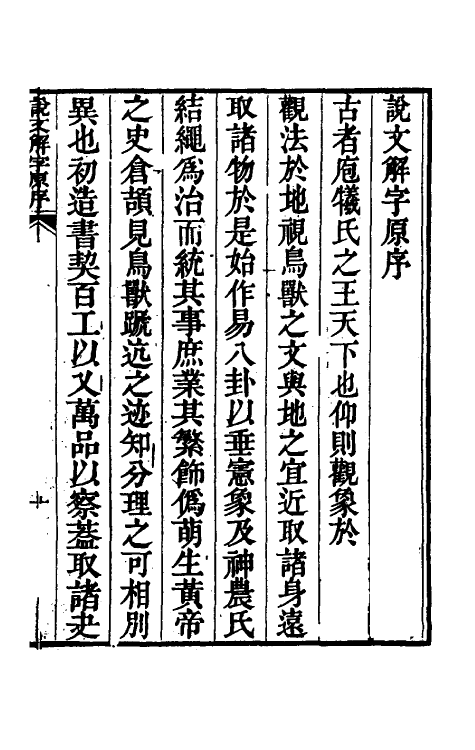 說文解字原序
古者庖犧氏之王天下也仰則觀象於
觀法於地視鳥獸之文與地之宜近取諸身遠
取諸物於是始作易八卦以垂憲象及神農氏
結繩爲治而統其事庶業其繁飾僞萌生黃帝
之史倉頡見鳥獸蹏迒之迹知分理之可相別
異也初造書契百工以乂萬品以察蓋取諸夬
說文解字原序